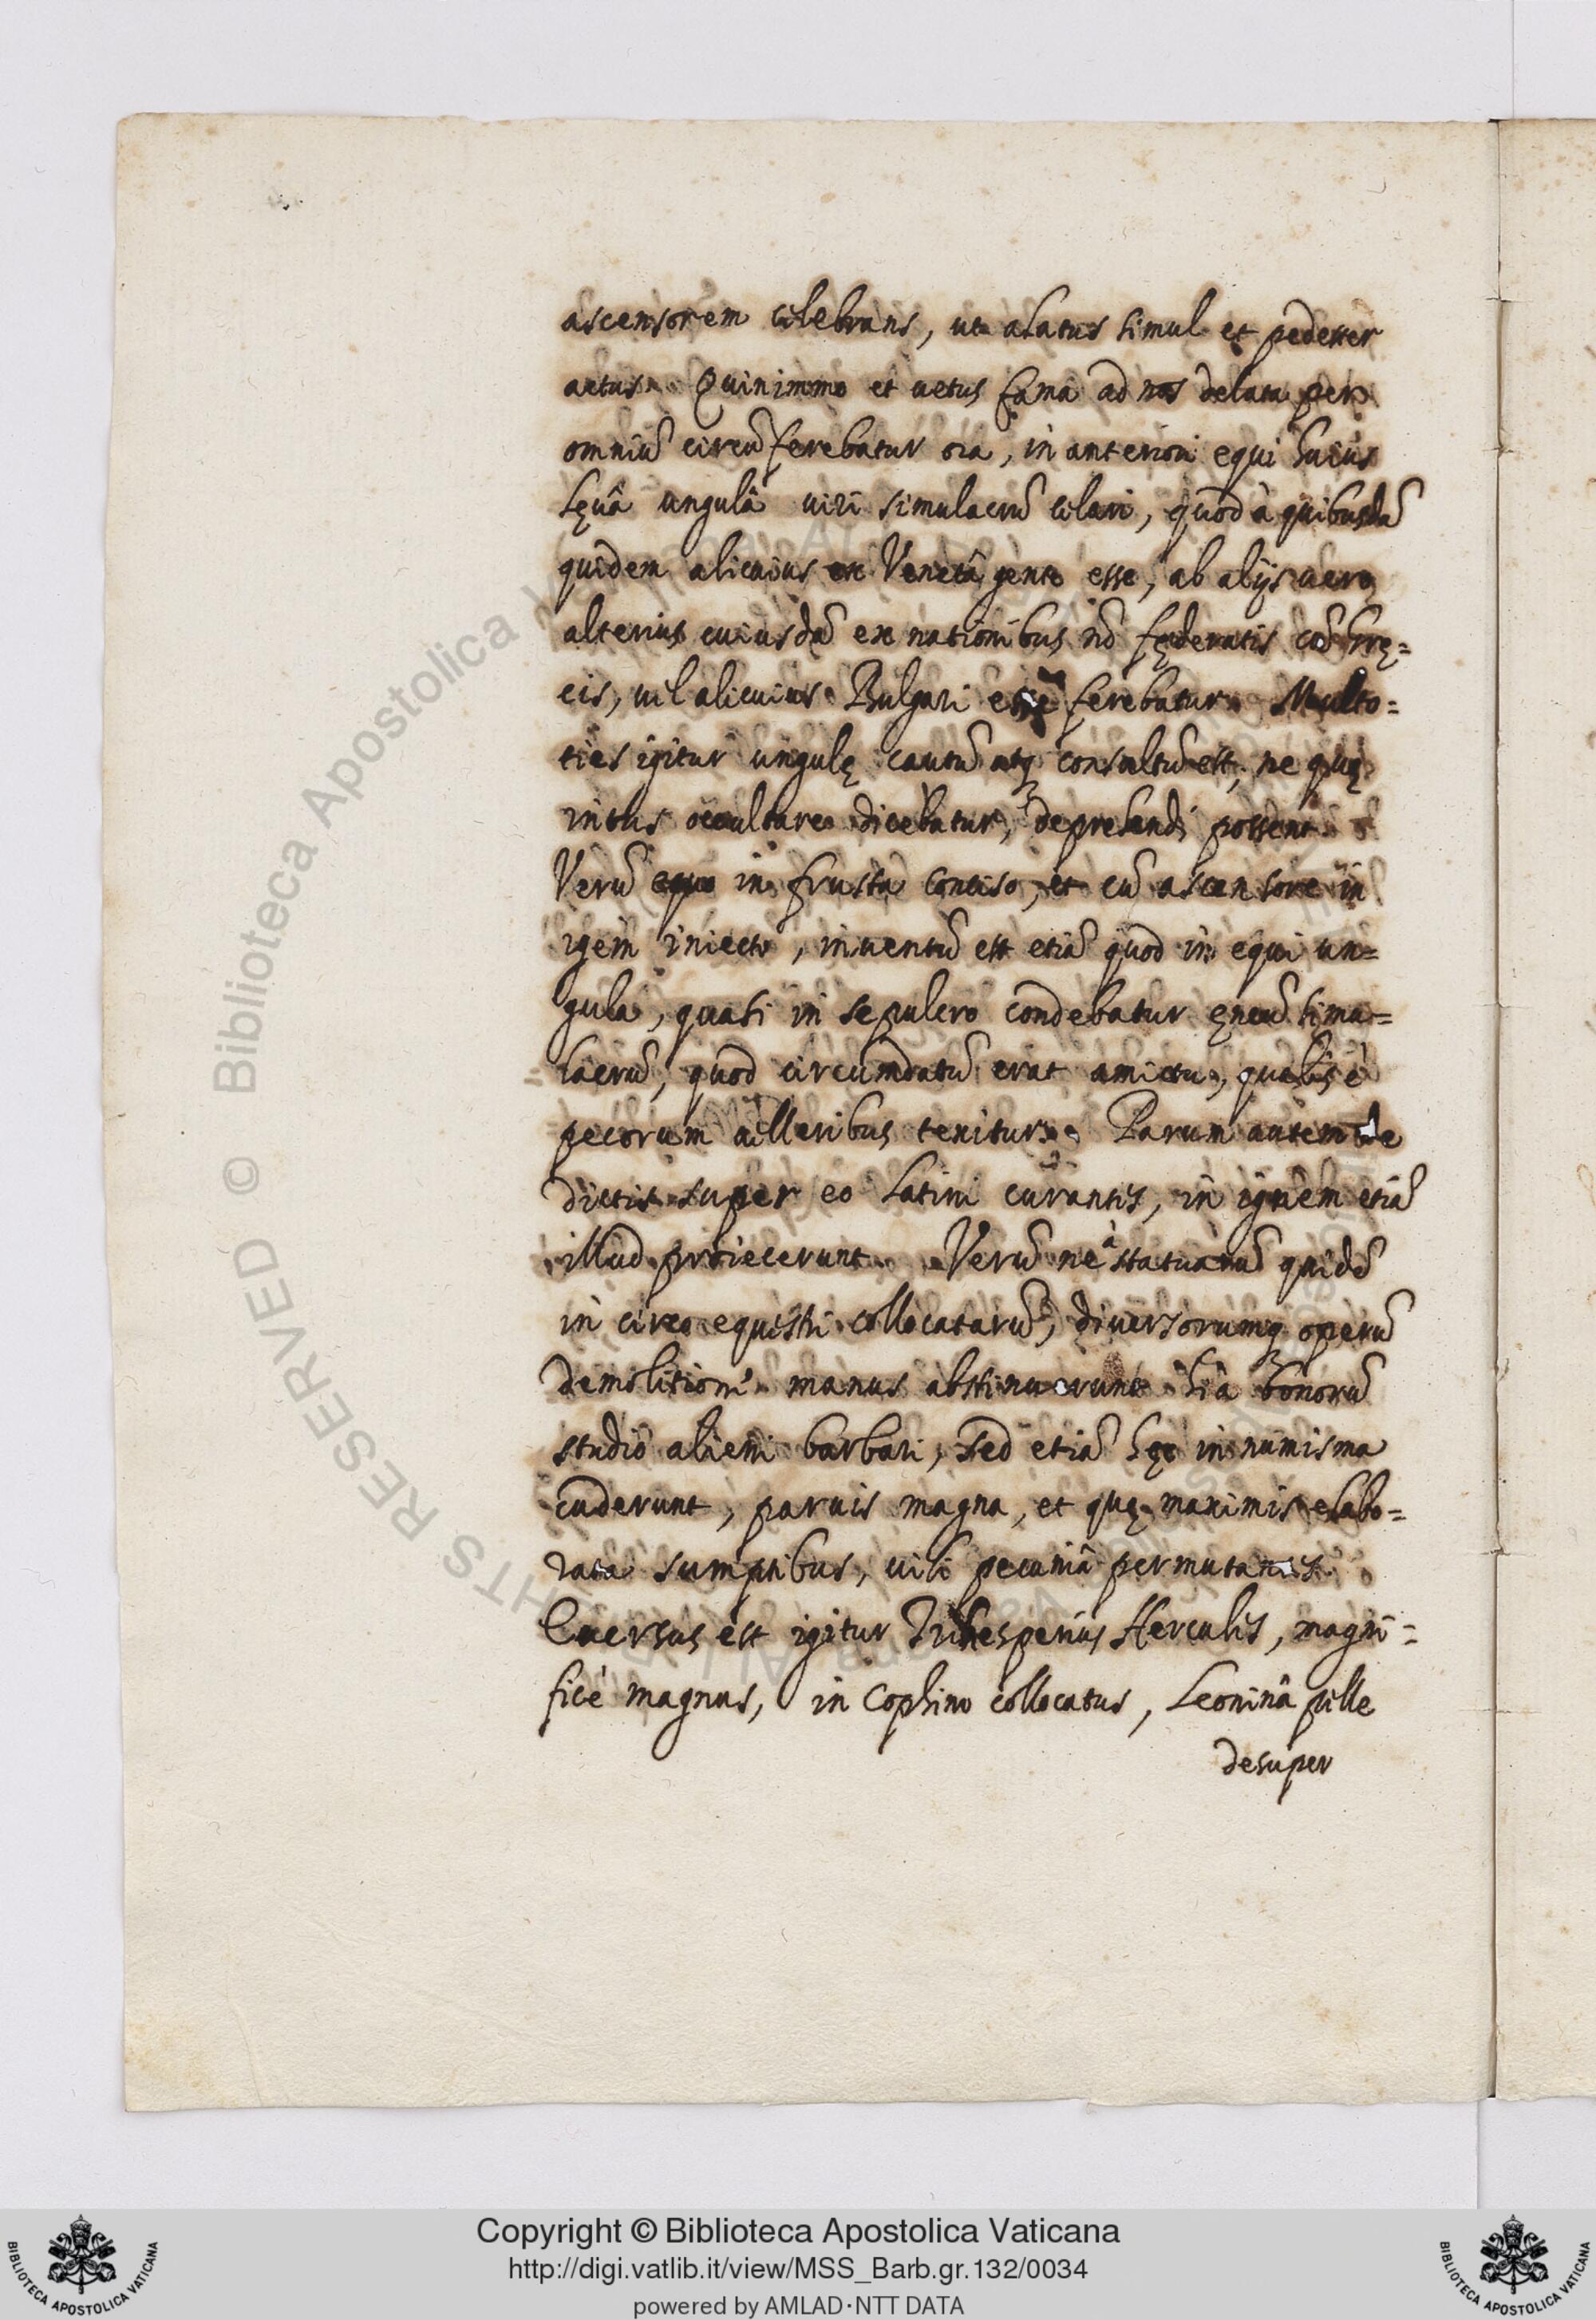 ascensorem celebrans, ut alatus simul et pedester
actus. Quinimmo et vetus fama ad nos delata per
omniũ circũferebatur ora, in anteriori equi huius
lęuâ ungulâ viri simulacrũ celari, quod à quibusdã
quidem alicuius ex Venetâ gente esse, ab alijs uero
alterius cuiusdã ex nationibus nõ fęderatis cũ Grę=
cis, uel alicuius Bulgari esse ferebatur. Multo=
ties igitur ungulę cautũ atq consultũ est, ne quę
intus occultare dicebatur, deprehendi possent.
Verũ equo in frusta conciso, et cũ ascensore in
igem iniecto, inuentũ est etiã quod in equi un=
gula, quasi in sepulcro condebatur ęneũ simu=
lacrũ, quod circumdatũ erat amictu, qualis è
pecorum uelleribus texitur. Parum autem de
dictis super eo Latini curantes, in ignem etiã
illud proiecerunt. Verũ ne à statuarũ quidẽ
in circo equestri collocatarũ, diuersorumq operũ
demolitione manus abstinuerunt hi à bonorũ
studio alieni barbari, sed etiã hęc in numisma
cuderunt, paruis magna, et quę maximis elabo=
rata sumptibus, uili pecuniâ permutantes.
Euersus est igitur Trihesperius Herculis, magni=
ficè magnus, in cophino collocatus, Leoninâ pelle
desuper
© Biblioteca Apostolica Vaticana
ALL RIGHTS RESERVED
Copyright © Biblioteca Apostolica Vaticana
http://digi.vatlib.it/view/MSS_Barb.gr.132/0034
powered by AMLAD·NTT DATA
BIBLIOTECA APOSTOLICA VATICANA
BIBLIOTECA APOSTOLICA VATICANA